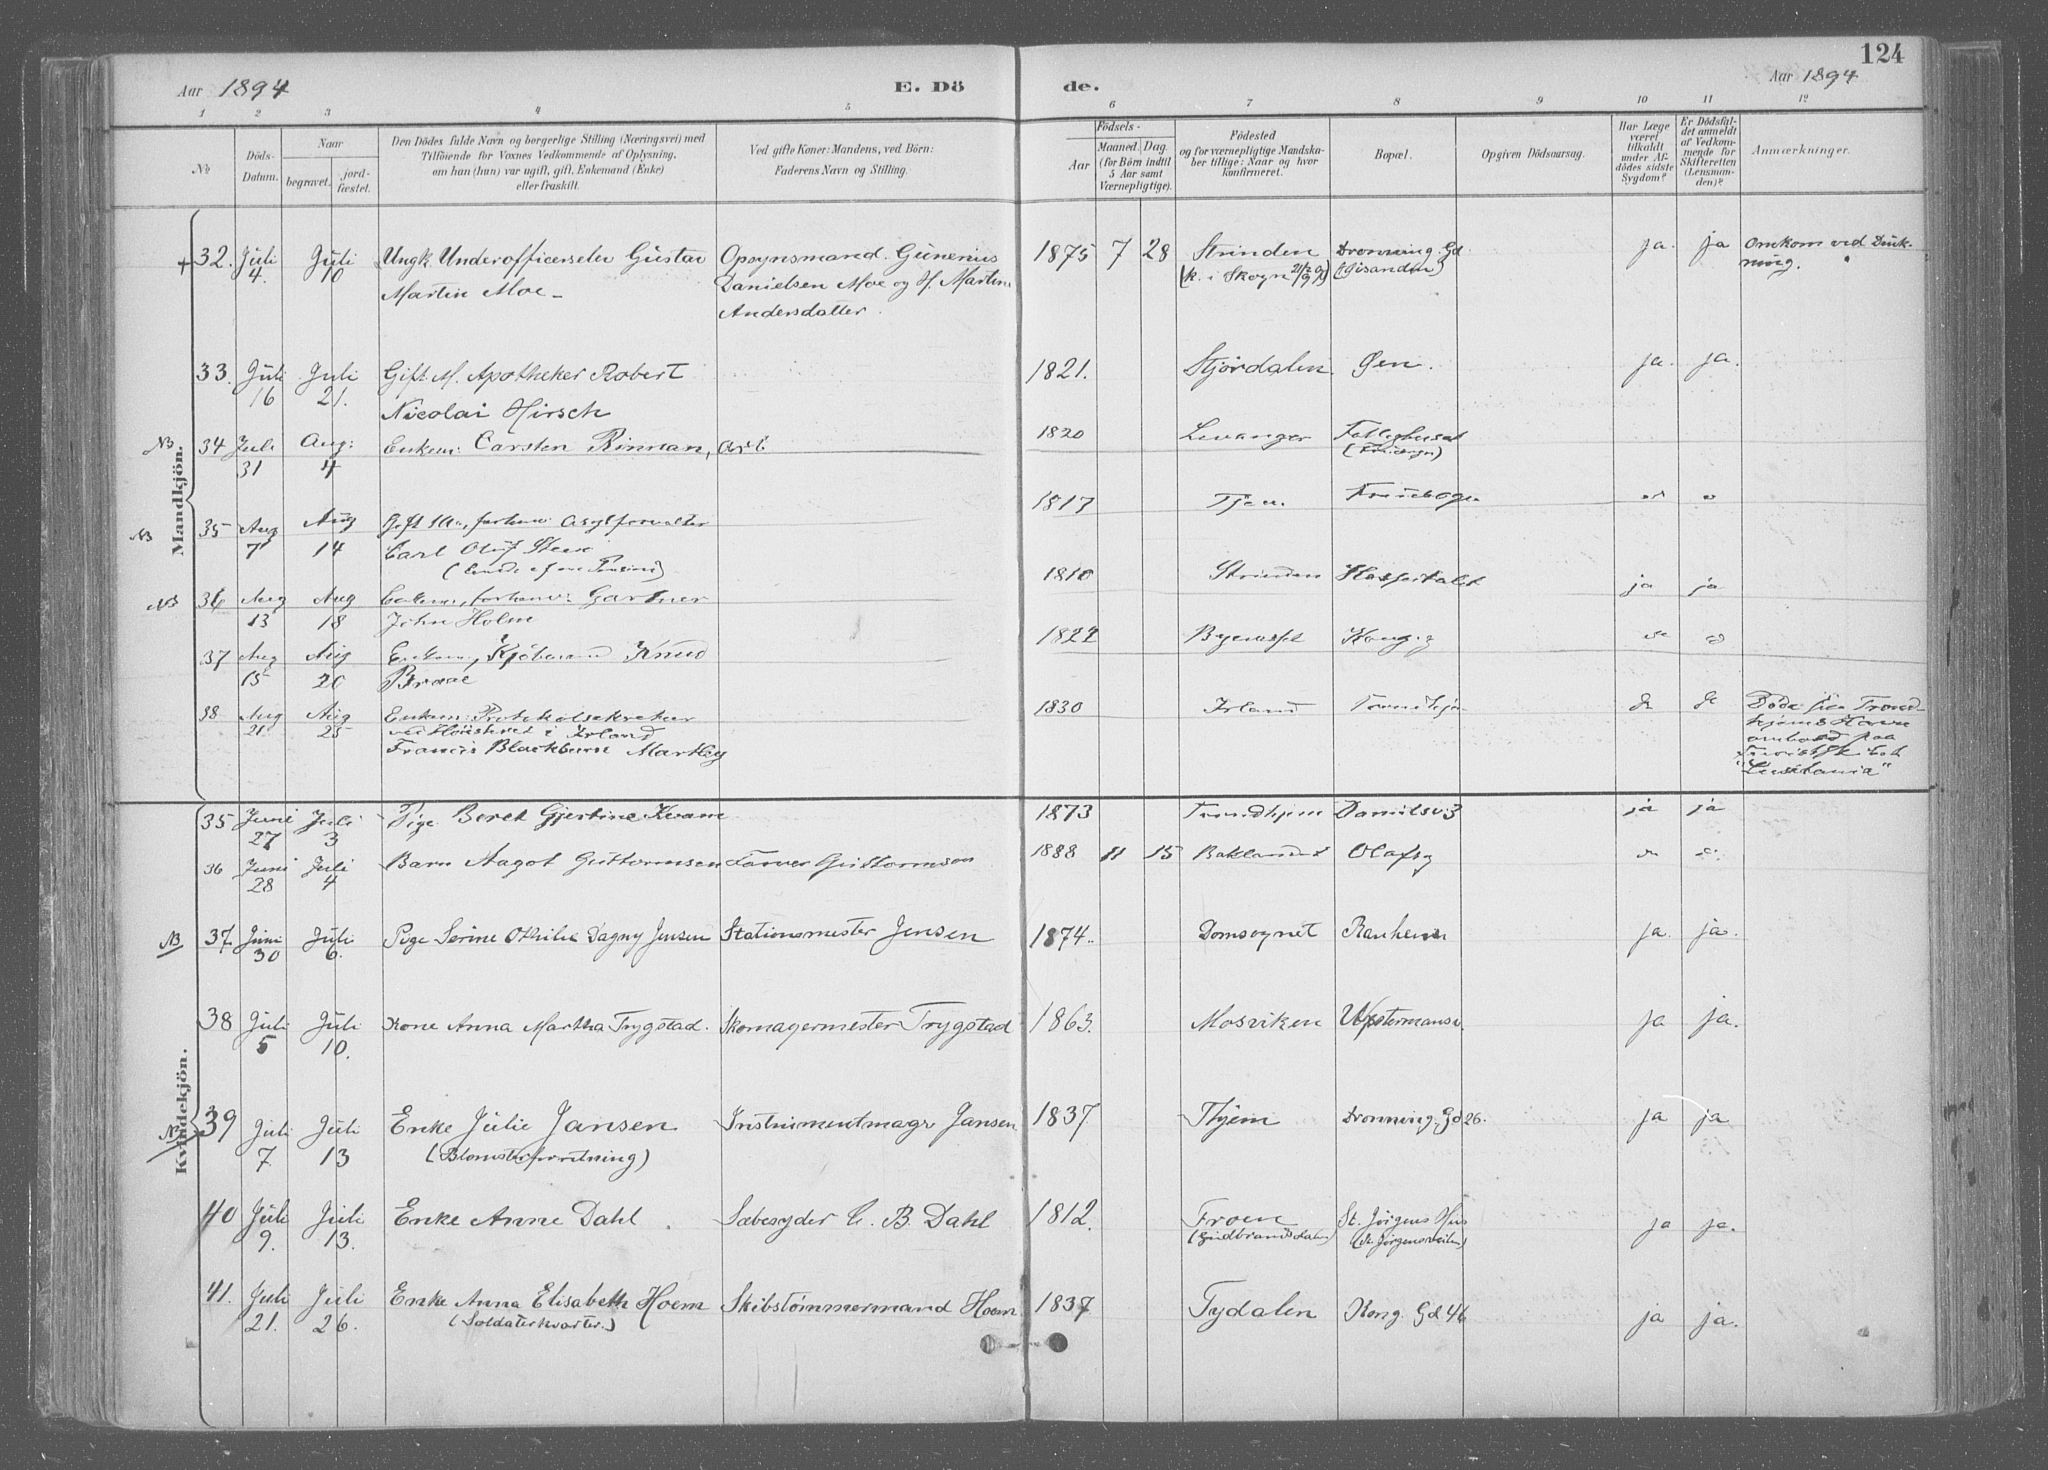 124
Aar 1894
E. Dö
de.
Aar 1894
1 2 3 4 5 6 7 8 9 10 11 12
№
Döds-Datum.
Naar
begravet.
jord-fæstet.
Den Dödes fulde Navn og borgerlige Stilling (Næringsvei) med
Tilföiende for Voxnes Vedkommende af Oplysning,
om han (hun) var ugift, gift, Enkemand (Enke)
eller fraskilt.
Ved gifte Koner: Mandens, ved Börn:
Faderens Navn og Stilling.
Födsels-
Aar
Maaned. Dag.
(for Börn indtil
5 Aar samt
Værnepligtige).
Födested
og for værnepligtige Mandska-
ber tillige: Naar og hvor
konfirmeret.
Bopæl.
Opgiven Dödsaarsag.
Har Læge
været
tilkaldt
under Af-
dödes sidste
Sygdom?
Er Dödsfal-
det anmeldt
af Vedkom-
mende for
Skifteretten
(Lensman-
den)?
Anmærkninger.
Mandkjön.
32. Juli 4. Juli 10 Ungk. Underofficerselev Gustav Opsynsmand. Gunerius 1875 7 28 Strinden Dronning. Gd ja. ja Omkom ved Druk-
Martin Moe Danielsen Moe og H. Martin (k. i Skogn (Gisanden) ning.
Andersdatter.
33. Juli 16 Juli 21. Gift M. Apotheker Robert 1821. Stjördalen Øen. ja. ja.
Nicolai Hirsch
NB 34 Juli 31 Aug: 4 Enkem: Carsten Rinnan, Arb 1820 Levanger Fattighuset
NB 35 Aug 7 Aug 14 Gift forhenv Asylforvalter 1817 Tjem.
Carl Oluf
NB 36 Aug 13 Aug 18 Enkem., forhenv: Gartner 1810 Strinden Hospitalet ja ja
John Holm
37 Aug 15 Aug 20 Enkem., Kjöbmand Knud 1822 Bynesset Kong. g do do
Braae
38 Aug 21 Aug 25 Enkem: Protokolsekretær 1830 Irland Trondhjem do do Döde paa Trond-
ved Höiesteret i Irland hjems Havn
Francis Blackburn Martley ombord paa
Turistsk.
"Lusitania"
Kvindekjön.
35 Juni 27 Juli 3 Pige Beret Gjertine Kvam 1873 Trondhjem Danielsv 3 ja ja
36 Juni 28 Juli 4 Barn Aagot Guttormsen Guttormsen 1888 11 15 Baklandet Olafsg do do
NB 37 Juni 30 Juli 6. Pige Serine Othilie Dagny Jensen Stationsmester Jensen 1874. Domsognet Ranheim ja. ja.
38 Juli 5 Juli 10. Kone Anna Martha Trygstad. Skomagermester Trygstad 1863. Mosviken Westermansv. ja ja.
NB 39 Juli 7. Juli 13 Enke Julie Jansen Instrumentmagr Jansen 1837 Thjem Dronning. Gd 26. ja ja
(Blomsterforretning)
40 Juli 9. Juli 13. Enke Anne Dahl Sæbesyder C. B. Dahl 1812. Froen St. Jörgens Hus ja ja.
(Gudbrandsdalen) (St. Jörgensveiten)
41. Juli 21. Juli 26. Enke Anna Elisabeth Hoem Skibstömmermand Hoem 1837 Tydalen Kong. Gd 46 ja ja.
(Soldaterkvarter.)